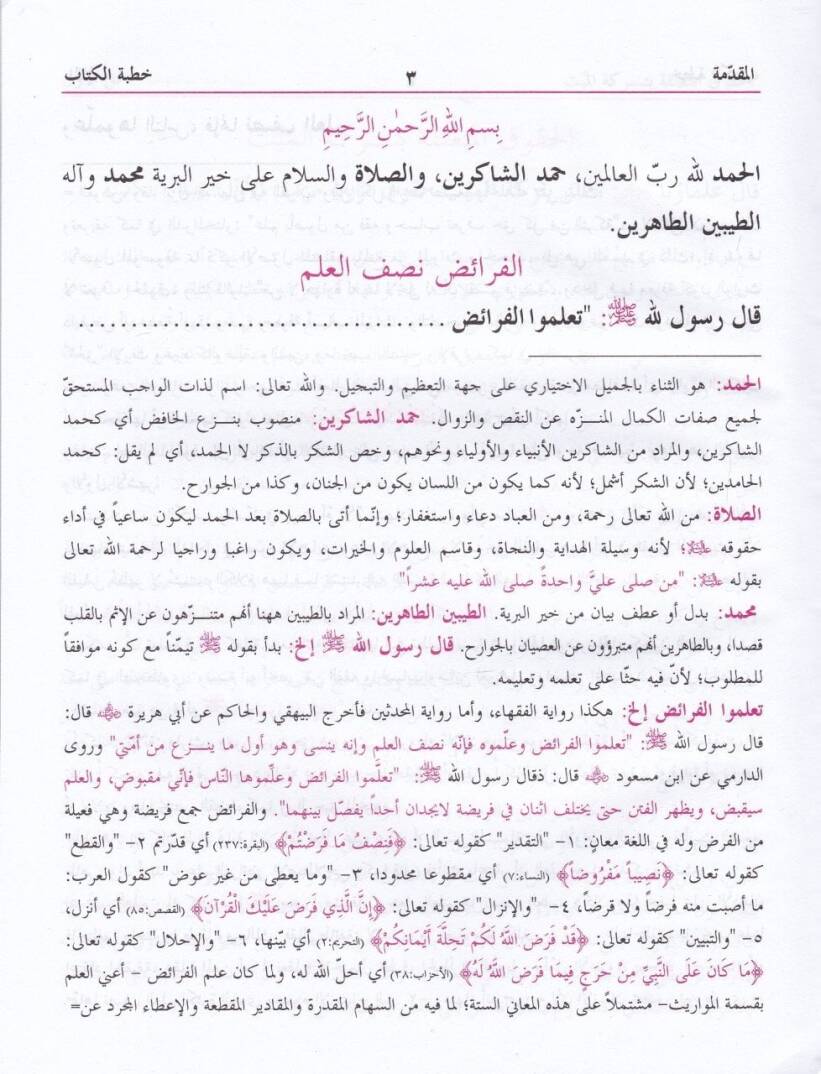 المقدّمة ٣ خطبة الكتاب
بِسمِ اللهِ الرَّحمٰنِ الرَّحِيمِ
الحمد لله ربّ العالمين، حمد الشاكرين، والصلاة والسلام على خير البرية محمد وآله
الطيبين الطاهرين.
الفرائض نصف العلم
قال رسول لله ﷺ: "تعلموا الفرائض ...............................
الحمد: هو الثناء بالجميل الاختياري على جهة التعظيم والتبجيل. والله تعالى: اسم لذات الواجب المستحقّ
لجميع صفات الكمال المنـزّه عن النقص والزوال. حمد الشاكرين: منصوب بنـزع الخافض أي كحمد
الشاكرين، والمراد من الشاكرين الأنبياء والأولياء ونحوهم، وخص الشكر بالذكر لا الحمد، أي لم يقل: كحمد
الحامدين؛ لأن الشكر أشمل؛ لأنه كما يكون من اللسان يكون من الجنان، وكذا من الجوارح.
الصلاة: من الله تعالى رحمة، ومن العباد دعاء واستغفار؛ وإنّما أتى بالصلاة بعد الحمد ليكون ساعياً في أداء
حقوقه ﷺ؛ لأنه وسيلة الهداية والنجاة، وقاسم العلوم والخيرات، ويكون راغبا وراجيا لرحمة الله تعالى
بقوله ﷺ: "من صلى عليَّ واحدةً صلى الله عليه عشراً"
محمد: بدل أو عطف بيان من خير البرية. الطيبين الطاهرين: المراد بالطيبين ههنا أنهم متنـزّهون عن الإثم بالقلب
قصدا، وبالطاهرين أنهم متبرؤون عن العصيان بالجوارح. قال رسول الله ﷺ إلخ: بدأ بقوله ﷺ تيمّناً مع كونه موافقاً
للمطلوب؛ لأن فيه حثّا على تعلمه وتعليمه.
تعلموا الفرائض إلخ: هكذا رواية الفقهاء، وأما رواية المحدثين فأخرج البيهقي والحاكم عن أبي هريرة ﷺ قال:
قال رسول الله ﷺ: "تعلموا الفرائض وعلّموه فإنّه نصف العلم وإنه ينسى وهو أول ما ينـزع من أمّتي" وروى
الدارمي عن ابن مسعود قال: ذقال رسول الله ﷺ: "تعلَّموا الفرائض وعلِّموها النّاس فإنّي مقبوض، والعلم
سيقبض، ويظهر الفتن حتى يختلف اثنان في فريضة لايجدان أحداً يفصّل بينهما". والفرائض جمع فريضة وهي فعيلة
من الفرض وله في اللغة معانٍ: ١- "التقدير" كقوله تعالى: ﴿فَنِصْفُ مَا فَرَضْتُمْ﴾ (البقرة:٢٣٧) أي قدّرتم ٢- "والقطع"
كقوله تعالى: ﴿نَصِيباً مَفْرُوضاً﴾ (النساء:٧) أي مقطوعا محدودا، ٣- "وما يعطى من غير عوض" كقول العرب:
ما أصبت منه فرضاً ولا قرضاً، ٤- "والإنزال" كقوله تعالى: ﴿إِنَّ الَّذِي فَرَضَ عَلَيْكَ الْقُرْآنَ﴾ (القصص:٨٥) أي أنزل،
٥- "والتبيين" كقوله تعالى: ﴿قَدْ فَرَضَ اللَّهُ لَكُمْ تَحِلَّةَ أَيْمَانِكُمْ﴾ (التحريم:٢) أي بينها، ٦- "والإحلال" كقوله تعالى:
﴿مَا كَانَ عَلَى النَّبِيِّ مِنْ حَرَجٍ فِيمَا فَرَضَ اللَّهُ لَهُ﴾ (الأحزاب:٣٨) أي أحلّ الله له، ولما كان علم الفرائض - أعني العلم
بقسمة المواريث- مشتملاً على هذه المعاني الستة؛ لما فيه من السهام المقدرة والمقادير المقطعة والإعطاء المجرد عن=